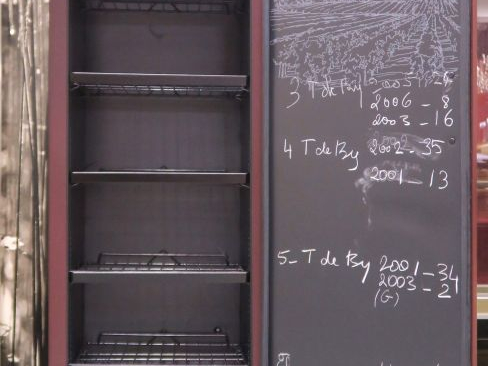 3 T de By 2005 - 26
2006 - 8
2003 - 16
4 T de By 2002 - 35
2001 - 13
5- T de By 2001 - 34
2003 - 2
(G)